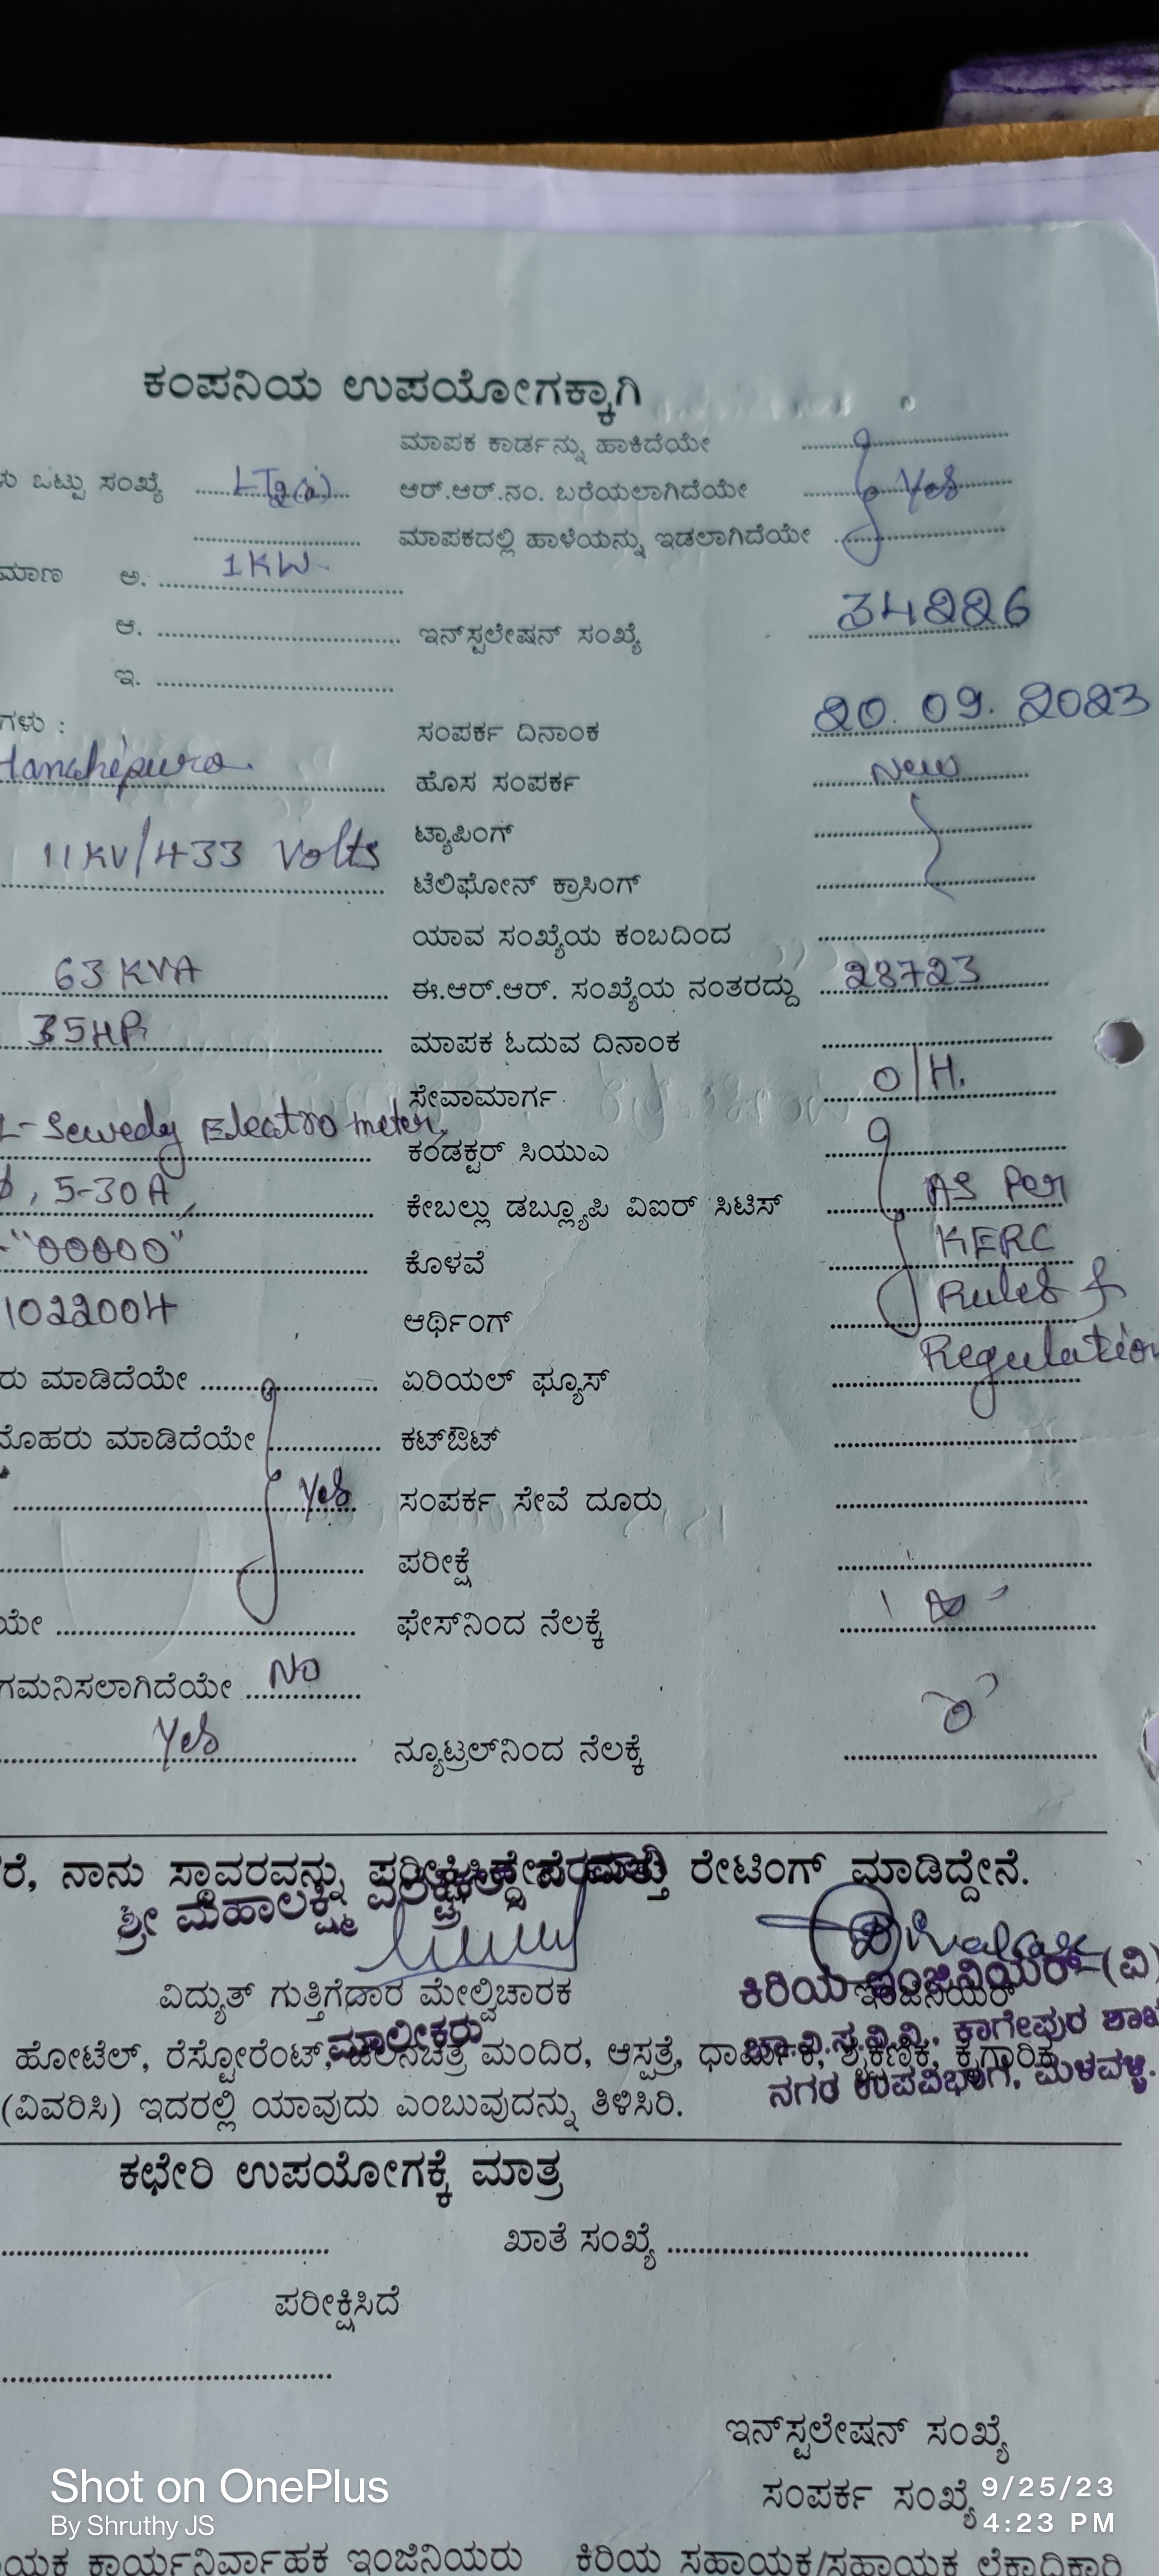 ಕಂಪನಿಯ ಉಪಯೋಗಕ್ಕಾಗಿ
ಮಾಪಕ ಕಾರ್ಡನ್ನು ಹಾಕಿದೆಯೇ
ಳು ಒಟ್ಟು ಸಂಖ್ಯೆ ಆರ್.ಆರ್.ನಂ. ಬರೆಯಲಾಗಿದೆಯೇ Yes
ಮಾಪಕದಲ್ಲಿ ಹಾಳೆಯನ್ನು ಇಡಲಾಗಿದೆಯೇ
ಮಾಣ ಅ. 1KW
ಆ. ಇನ್‌ಸ್ಟಲೇಷನ್ ಸಂಖ್ಯೆ 34226
ಇ.
ಗಳು : ಸಂಪರ್ಕ ದಿನಾಂಕ 20.09.2023
Hanchipura ಹೊಸ ಸಂಪರ್ಕ New
11KV/433 Volts ಟ್ಯಾಪಿಂಗ್
ಟೆಲಿಫೋನ್ ಕ್ರಾಸಿಂಗ್
ಯಾವ ಸಂಖ್ಯೆಯ ಕಂಬದಿಂದ
63 KVA ಈ.ಆರ್.ಆರ್. ಸಂಖ್ಯೆಯ ನಂತರದ್ದು 28723
35HP ಮಾಪಕ ಓದುವ ದಿನಾಂಕ
ಸೇವಾಮಾರ್ಗ O/H.
L-Sewedy Electrometer, ಕಂಡಕ್ಟರ್ ಸಿಯುಎ
, 5-30A, ಕೇಬಲ್ಲು ಡಬ್ಲ್ಯೂಪಿ ವಿಐರ್ ಸಿಟಿಸ್ As Per
-"00000" ಕೊಳವೆ KERC
1022004 ಆರ್ಥಿಂಗ್ Rules &
Regulation
ರು ಮಾಡಿದೆಯೇ ಏರಿಯಲ್ ಫ್ಯೂಸ್
ನೊಹರು ಮಾಡಿದೆಯೇ ಕಟ್‌ಔಟ್
Yes ಸಂಪರ್ಕ ಸೇವೆ ದೂರು
ಪರೀಕ್ಷೆ
ಯೇ ಫೇಸ್‌ನಿಂದ ನೆಲಕ್ಕೆ
ಗಮನಿಸಲಾಗಿದೆಯೇ No
Yes ನ್ಯೂಟ್ರಲ್‌ನಿಂದ ನೆಲಕ್ಕೆ
ರೆ, ನಾನು ಸ್ಥಾವರವನ್ನು ರೇಟಿಂಗ್ ಮಾಡಿದ್ದೇನೆ.
ಶ್ರೀ ಮಹಾಲಕ್ಷ್ಮಿ
ವಿದ್ಯುತ್ ಗುತ್ತಿಗೆದಾರ ಮೇಲ್ವಿಚಾರಕ ಇಂಜಿನಿಯರ್
ಕಿರಿಯ ಇಂಜಿನಿಯರ್ (ವಿ)
ಮಾಲೀಕರು
ಚಾ.ವಿ.ಸ.ನಿ.ನಿ., ಕಾಗೇಪುರ ಶಾಖೆ
ಹೋಟೆಲ್, ರೆಸ್ಟೋರೆಂಟ್, ಚಲನಚಿತ್ರ ಮಂದಿರ, ಆಸ್ಪತ್ರೆ, ಧಾರ್ಮಿಕ, ಶೈಕ್ಷಣಿಕ, ಕೈಗಾರಿಕ
ನಗರ ಉಪವಿಭಾಗ, ಮಳವಳ್ಳಿ.
(ವಿವರಿಸಿ) ಇದರಲ್ಲಿ ಯಾವುದು ಎಂಬುವುದನ್ನು ತಿಳಿಸಿರಿ.
ಕಛೇರಿ ಉಪಯೋಗಕ್ಕೆ ಮಾತ್ರ
ಖಾತೆ ಸಂಖ್ಯೆ
ಪರೀಕ್ಷಿಸಿದೆ
ಇನ್‌ಸ್ಟಲೇಷನ್ ಸಂಖ್ಯೆ
ಸಂಪರ್ಕ ಸಂಖ್ಯೆ
Shot on OnePlus
By Shruthy JS
9/25/23
4:23 PM
ಯಕ ಕಾರ್ಯನಿರ್ವಾಹಕ ಇಂಜಿನಿಯರು ಕಿರಿಯ ಸಹಾಯಕ/ಸಹಾಯಕ ಲೆಕ್ಕಾಧಿಕಾರಿ